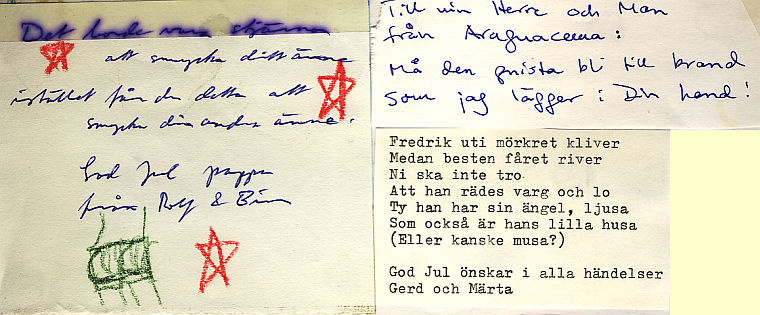 Det borde vara stjärna
att smycka ditt änne
istället får du detta att
smycka din andra änne.
God Jul pappa
från Rolf &
Till min Herre och Man
från Araguacema:
Må den gnista bli till brand
som jag lägger i Din hand!
Fredrik uti mörkret kliver
Medan besten fåret river
Ni ska inte tro
Att han rädes varg och lo
Ty han har sin ängel, ljusa
Som också är hans lilla husa
(Eller kanske musa?)
God Jul önskar i alla händelser
Gerd och Märta